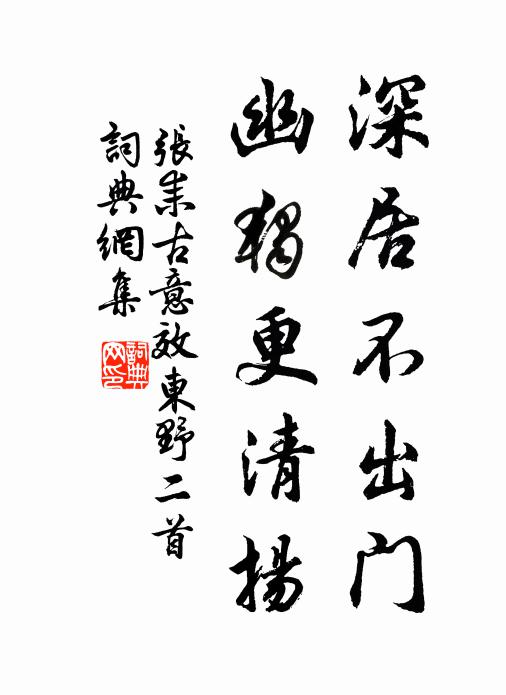 深居不出门
幽獨更清揚
張耒古意效東野二首
詞典網集
詞典網印